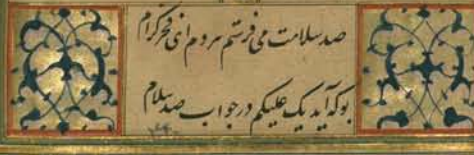 صد سلامت می فرستم هر دم ای فخر کرام
بو که آید یک علیکم در جواب صد سلام